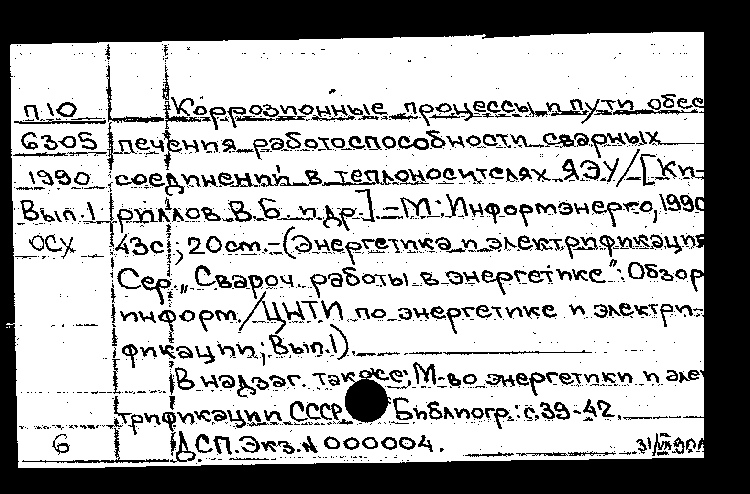 П10 Коррозионные процессы и пути обес
6305 печения работоспособности сварных
1990 соединений в теплоносителях ЯЭУ/[Ки-
Вып.1 риллов В.Б. и др.] – М.: Информэнерго, 1990
ОСХ 43с.; 20cm. – (Энергетика и электрификация
Сер. „Свароч. работы в энергетике": Обзор
информ./ЦНТИ по энергетике и электри-
фикации; Вып.1).
В надзаг. также: М-во энергетики и элек
трификации СССР. Библиогр.: с.39-42.
6 ДСП. Экз. N 000004.